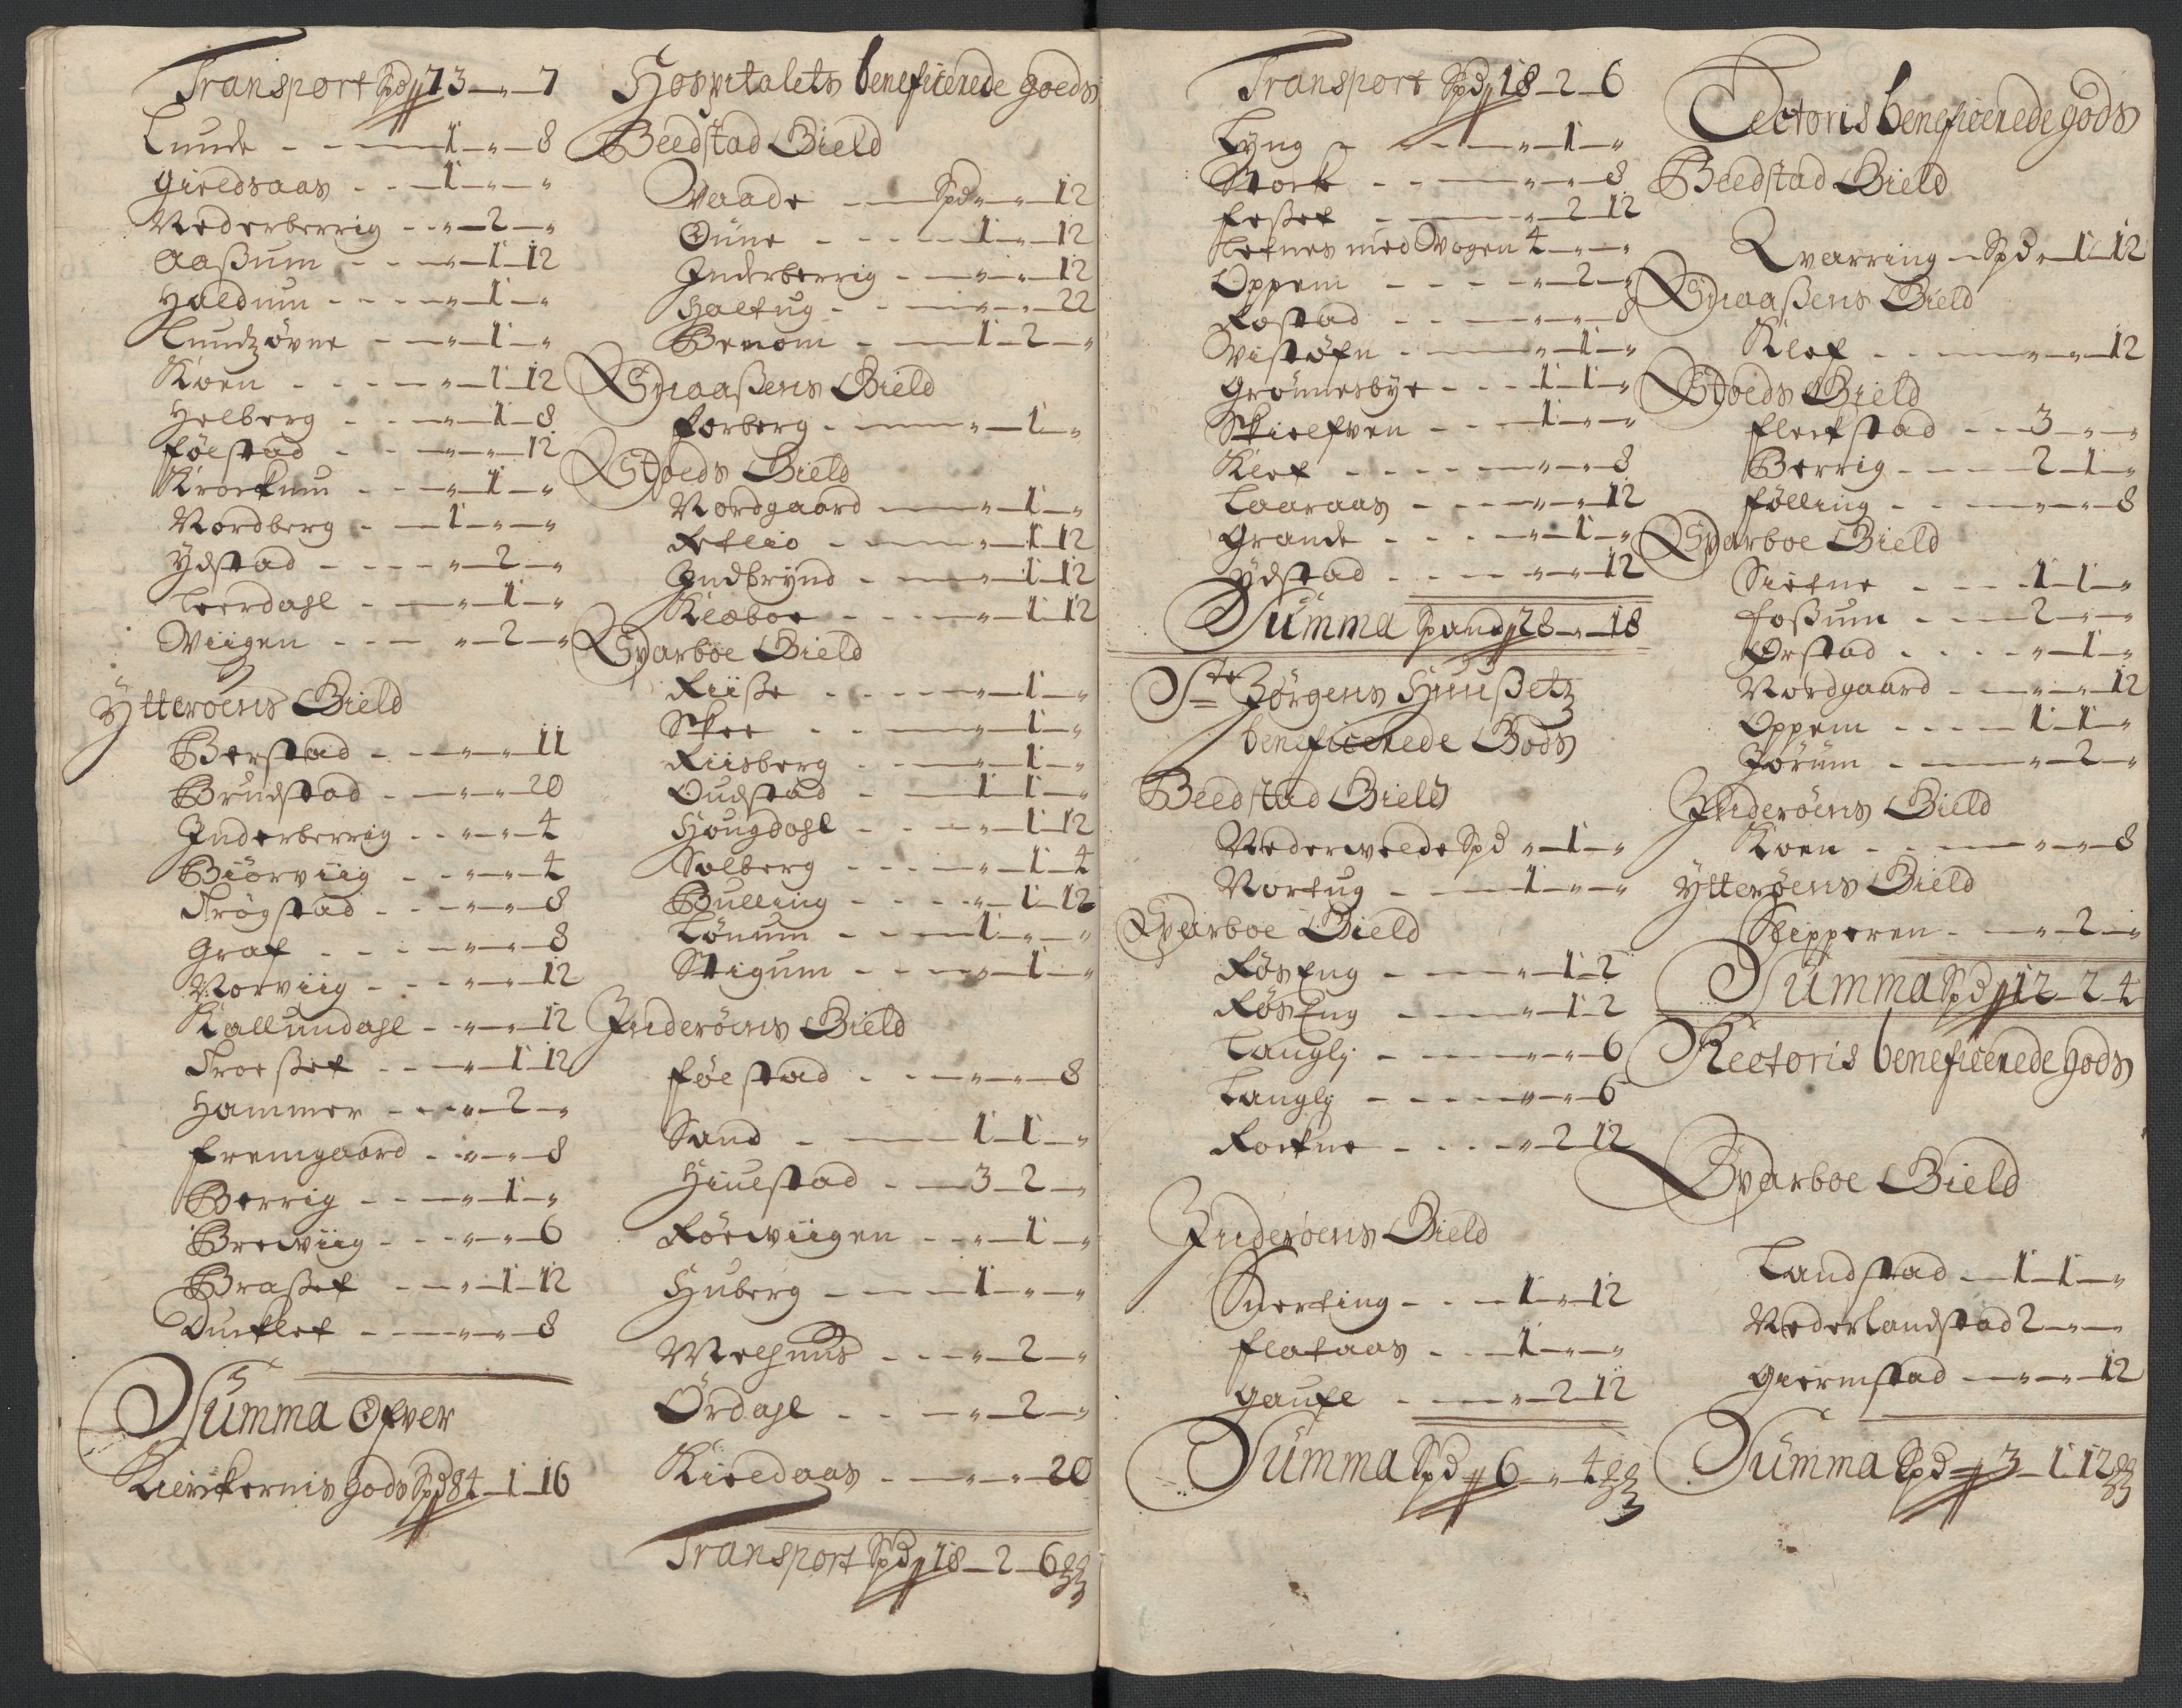 Transport Spd 73 — „ — 7
Lunde - - — 1 — „ — 8
Gieldsaas - - — 1 — „ — „
Nederberrig - - „ — 2 — „
Aaßum - - — „ — 1 — 12
Haldum - - - — „ — 1 — „
Lundzøvne - — „ — 1 — „
Koen - - - — „ — 1 — 12
Helberg - - — „ — 1 — 8
Føestad - - — „ — „ — 12
Krockum - - — „ — 1 — „
Nordberg - — 1 — „ — „
Ydstad - - - - „ — 2 — „
Leerdahl - — „ — 1 — „
Wiigen - - — „ — 2 — „
Ytterøens Gield
Berstad - - — „ — „ — 11
Brudstad - — „ — „ — 20
Inderberrig - - „ — „ — 4
Biörviig - - „ — „ — 4
Trøgstad - - — „ — „ — 8
Graf - - - — „ — „ — 8
Norviig - - - „ — „ — 12
Kallundahl - - „ — „ — 12
Troeßet - - — „ — 1 — 12
Hammer - - — „ — 2 — „
Fremgaard - - „ — „ — 8
Berrig - - — „ — 1 — „
Brewiig - - - „ — „ — 6
Braßet - - — „ — 1 — 12
Dueklet - - — „ — „ — 8
Summa Ofver
Kierkernis gods Spd 84 — 1 — 16
Hospitalets beneficerede goeds
Beedstad Gield
Vaade - — Spd „ — „ — 12
Øüne - - - — 1 — „ — 12
Inderberrig - — „ — „ — 12
Haltug - - — „ — „ — 22
Benom - — 1 — 2 — „
Snaaßens Gield
Forberg - — „ — 1 — „
Stoeds Gield
Nordgaard — „ — 1 — „
Retleio - — „ — 1 — 12
Indbrynd - — „ — 1 — 12
Klæboe - - - — „ — 1 — 12
Sparboe Gield
Riiße - - - — „ — 1 — „
Skee - - — „ — 1 — „
Riisberg - - — „ — 1 — „
Oudstad - — 1 — 1 — „
Hougdahl - - - — „ — 1 — 12
Solberg - - - - „ — 1 — 4
Bulling - - - - „ — 1 — 12
Lønum - - — 1 — „ — „
Stigum - - - — „ — 1 — „
Inderøens Gield
Føestad - - — „ — „ — 8
Sand - — 1 — 1 — „
Hiulstad - - — 3 — 2 — „
Rørwiigen - - „ — 1 — „
Huberg - - — 1 — „ — „
Melhuus - - - „ — 2 — „
Ördahl - - — „ — 2 — „
Kieldaas - — „ — „ — 20
Transport Spd 18 — 2 — 6
Transport Spd 18 — 2 — 6
Lyng - - - — „ — 1 — „
Stork - - — „ — „ — 8
Feßet - — „ — 2 — 12
Letnes med Vogen 4 — „ — „
Oppem - - - - „ — 2 — „
Rostad - - — „ — „ — 8
Wistøfn - — „ — 1 — „
Grønnesbye - - - 1 — 1 — „
Skielfven - - — 1 — „ — „
Klef - - - - — „ — „ — 8
Laaraas - - - — „ — „ — 12
Grande - - - - „ — 1 — „
Ydstad - - — „ — „ — 12
Summa Spand 28 — „ — 18
Ste Jørgens Huußetz
beneficerede Gods
Beedstad Gield
Nederwelde Spd „ — 1 — „
Nortug - — 1 — „ — „
Sparboe Gield
Røs Eng - — „ — 1 — 2
Røs Eng - — „ — 1 — 2
Langlj - — „ — „ — 6
Langlg - - - — „ — „ — 6
Rockne - - - — „ — 2 — 12
Inderøens Gield
Snerting - - — 1 — „ — 12
Flataas - - — 1 — „ — „
Gaufl - — „ — 2 — 12
Summa Spd 6 — „ — 4
Lectoris beneficerede gods
Beedstad Gield
Qvarring — Spd „ — 1 — 12
Snaaßens Gield
Klef - - — „ — „ — 12
Stoeds Gield
Fleckstad - - 3 — „ — „
Berrig - - — 2 — 1 — „
Følling - - — „ — „ — 8
Sparboe Gield
Sietne - - — 1 — 1 — „
Foßum - - — 2 — „ — „
Ørstad - - - - „ — 1 — „
Nordgaard - — „ — „ — 12
Oppem - - - — 1 — 1 — „
Jørum - — „ — 2 — „
Inderøens Gield
Koen - - — „ — „ — 8
Ytterøens Gield
Skipperen - — „ — 2 — „
Summa Spd 12 — 2 — 4
Rectoris beneficerede gods
Sparboe Gield
Landstad — 1 — 1 — „
Nederlandstad 2 — „ — „
Giermstad — „ — „ — 12
Summa Spd 3 — 1 — 12